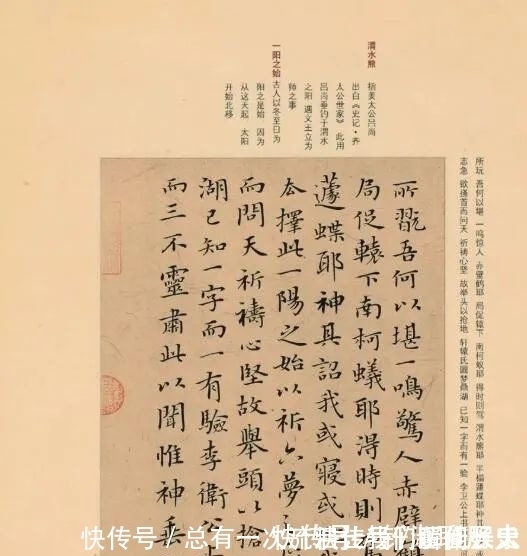 渭水熊
指姜太公吕尚
出自《史记·齐
太公世家》此用
吕尚垂钓于渭水
之阳 遇文王立为
师之事
一阳之始 古人以冬至日为
阳之是始 因为
从这天起 太阳
开始北移
所玩 吾何以堪 一鸣惊人 赤壁鹤耶 局促辕下 南柯蚁耶 得时则驾 渭水熊耶 半榻蘧蝶耶神
志急 欲搔首而问天 祈祷心坚 故举头以抢地 轩辕氏圆梦鼎湖 已知一字而有一验 李卫公上书
所翫吾何以堪一鳴驚人赤壁
局促轅下南柯蟻耶淂時則
蘧蝶耶神其詔我或寢或
太擇此一陽之始以祈六夢
而問天祈禱心堅故舉頭以搶
湖已知一字而一有驗李衛
而三不靈肅此以聞惟神垂
快传号／总有一次流